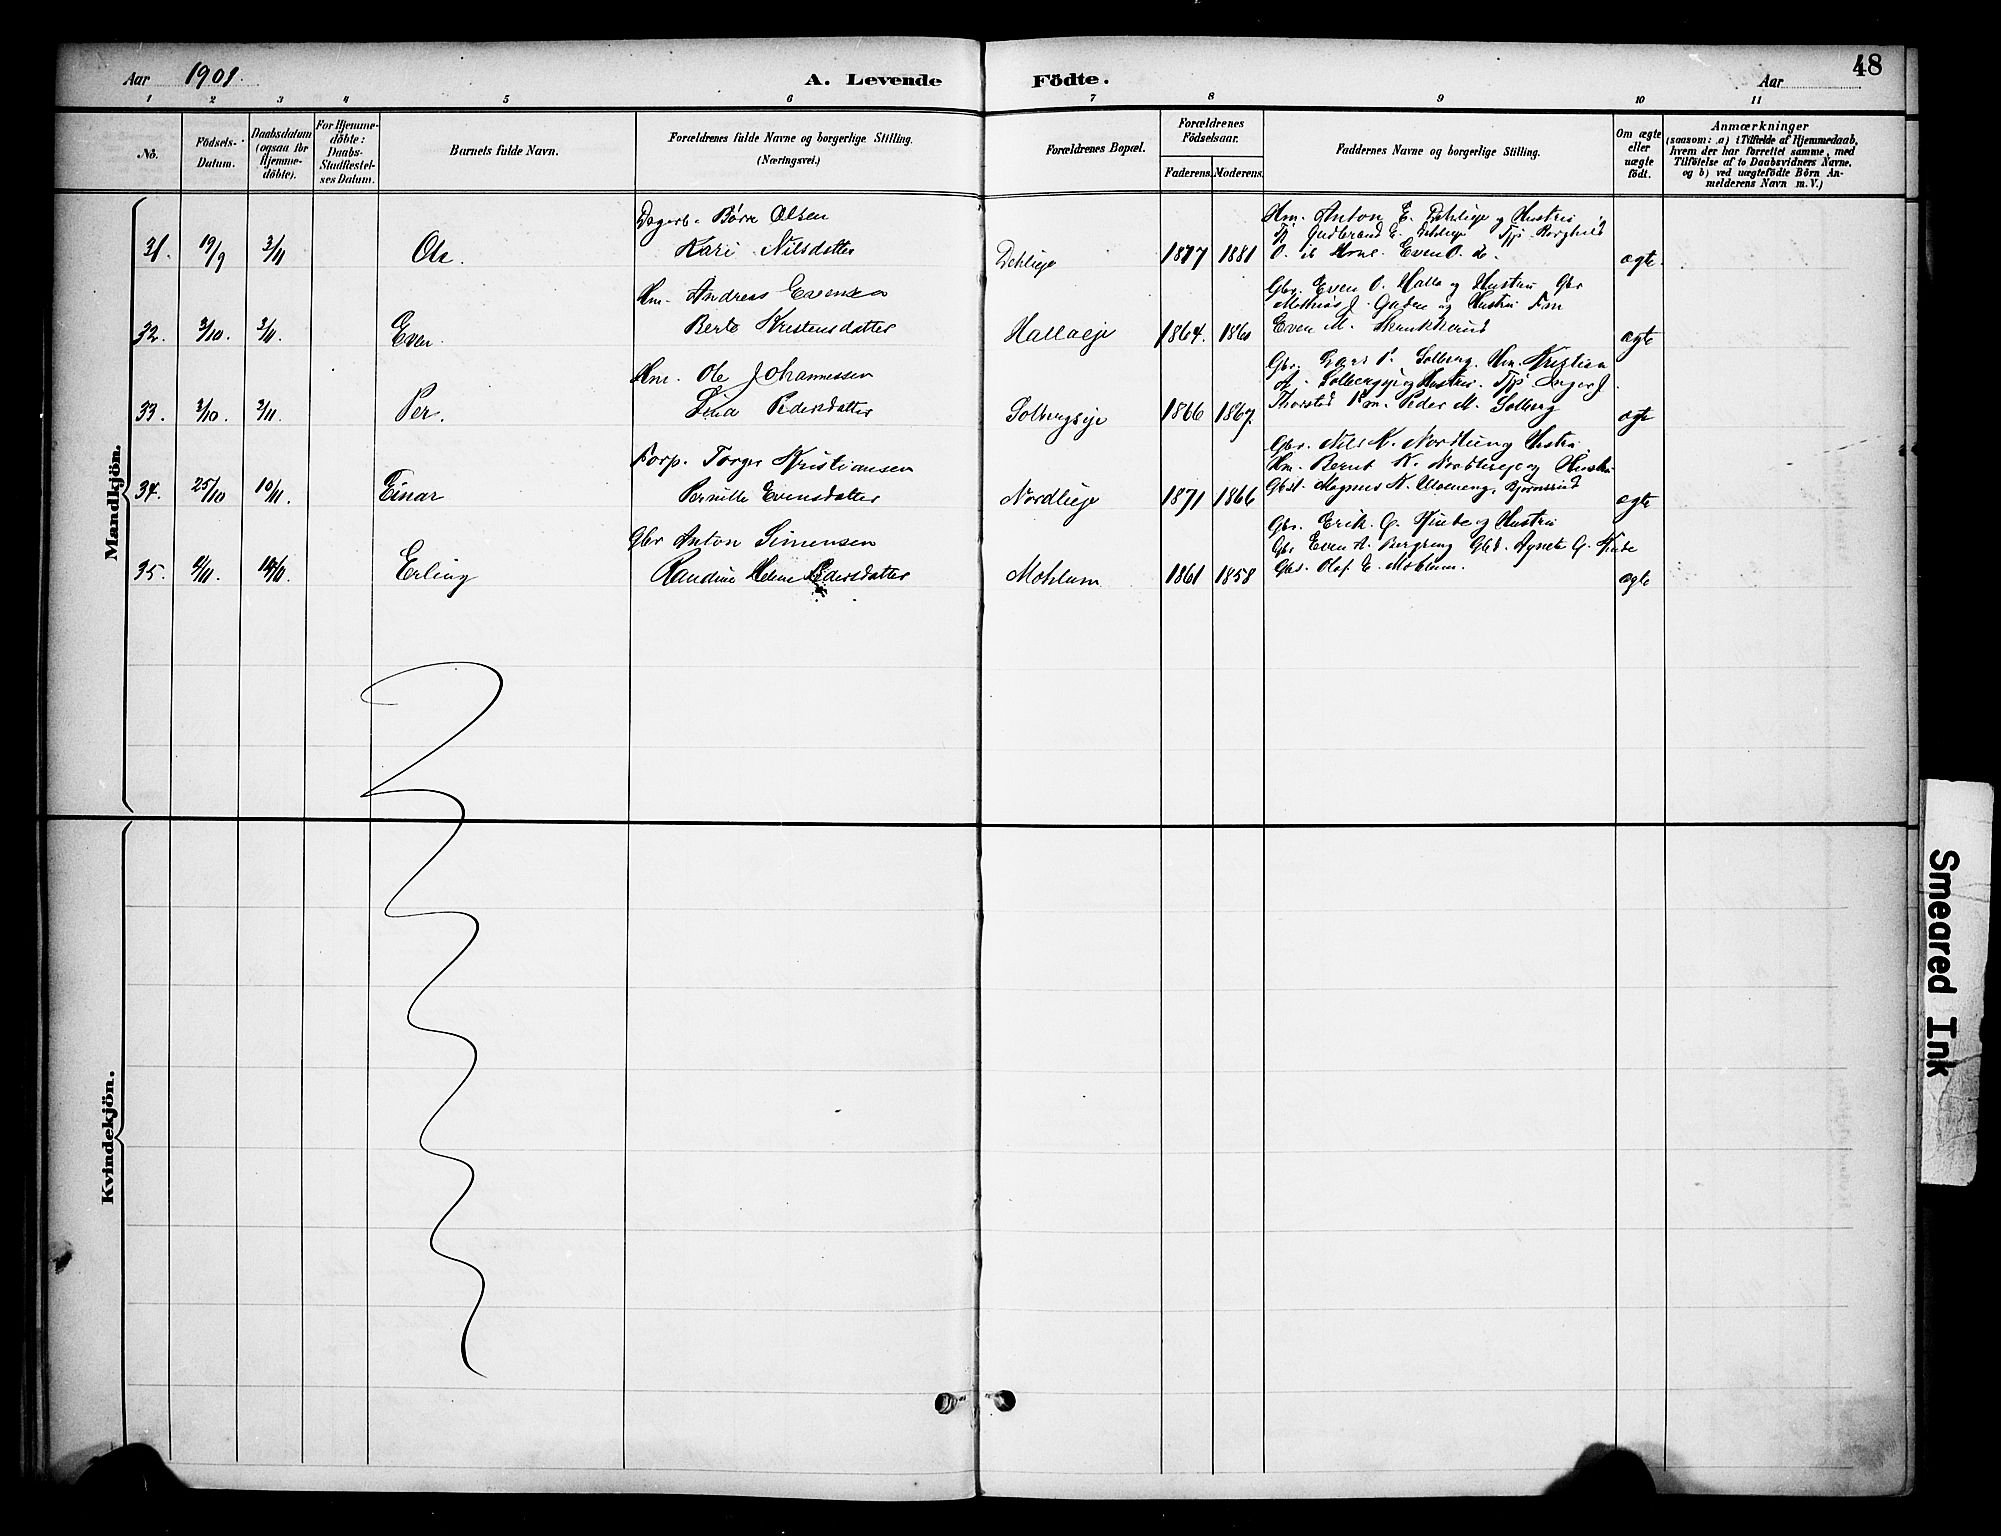 Aar 1901.
A. Levende Födte.
Aar
48
1 2 3 4 5 6 7 8 9 10 11
No.
Födsels-
Datum.
Daabsdatum
(ogsaa for
Hjemme-
döbte).
For Hjemme-
döbte:
Daabs-
Stadfæstel-
ses Datum.
Barnets fulde Navn.
Forældrenes fulde Navne og borgerlige Stilling.
(Næringsvei.)
Forældrenes Bopæl.
Forældrenes
Födselsaar.
Faderens. Moderens.
Faddernes Navne og borgerlige Stilling.
Om ægte
eller
uægte
födt.
Anmærkninger
(saasom: a) i Tilfælde af Hjemmedaab,
hvem der har forrettet samme, med
Tilföielse af to Daabsvidners Navne,
og b) ved uægtefödte Börn An-
melderens Navn m. V.)
Mandkjön.
Dagarb. Børre Olsen
Hm. Anton E. Dehlieje og Hustru
Tj. Gudbrand E. Dehlieje Tjp. Borghild
31. 19/9 3/11 Ole. Kari Nilsdatter Dehlieje 1877 1881 O. Even O. ægte
Hm. Andreas Evensen
Gbr. Even O. Halla og Hustru Gbr
Mathias J. og Hustru Fm
32. 3/10. 3/11. Even. Berte Kristensdatter Hallaeje 1864. 1860 Even M. ægte
Hm. Ole Johannessen
Gbr. P. Solberg. Hm. Kristian
A. Solbergseje og Hustru. Tjp. Inger J.
33. 2/10. 3/11. Per. Lina Pedersdatter Solbergseje 1866 1867. Thorstad Fm. Peder M. Solberg ægte
Forp. Torger Kristiansen
Gbr. Nils K. Nordli og Hustru
Hm. Bernt K. Nordlieje og Hustru
34. 25/10 10/11. Einar Pernille Evensdatter Nordlieje 1871 1866 Gbst. Magnus N. ægte
Gbr Anton Simensen
Gbr. Erik G. og Hustru
Gbr Even A. Bergeng Gbd. Agnete G.
35. Erling Randine Helene Pedersdatter Mohlum 1861 1858 Gbs. Olaf E. Mohlum. ægte
Kvindekjön.
Smeared Ink